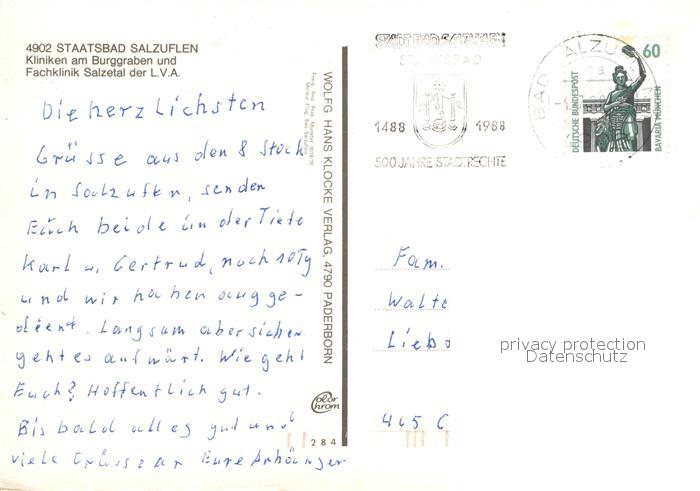 4902 STAATSBAD SALZUFLEN
Kliniken am Burggraben und
Fachklinik Salzetal der L.V.A.
Die herzlichsten
Grüsse aus den 8 Stock
in Salzufln, senden
Euch beide in der Tiefe
Karl u. Gertrud, noch 10 Tg
und wir haben ausge-
dient. Langsam aber sicher
geht es aufwärt. Wie geht
Euch? Hoffentlich gut.
Bis bald alles gut und
viele Grüsse an Eure Anhänger
WOLFG HANS KLOCKE VERLAG, 4790 PADERBORN
Color
chrom
284
STADT BAD SALZUFLEN
STAATSBAD
1488 1988
500 JAHRE STADTRECHTE
BAD SALZU
60
DEUTSCHE BUNDESPOST
BAVARIA MÜNCHEN
Fam.
Walte
Liebo
405 6
privacy protection
Datenschutz